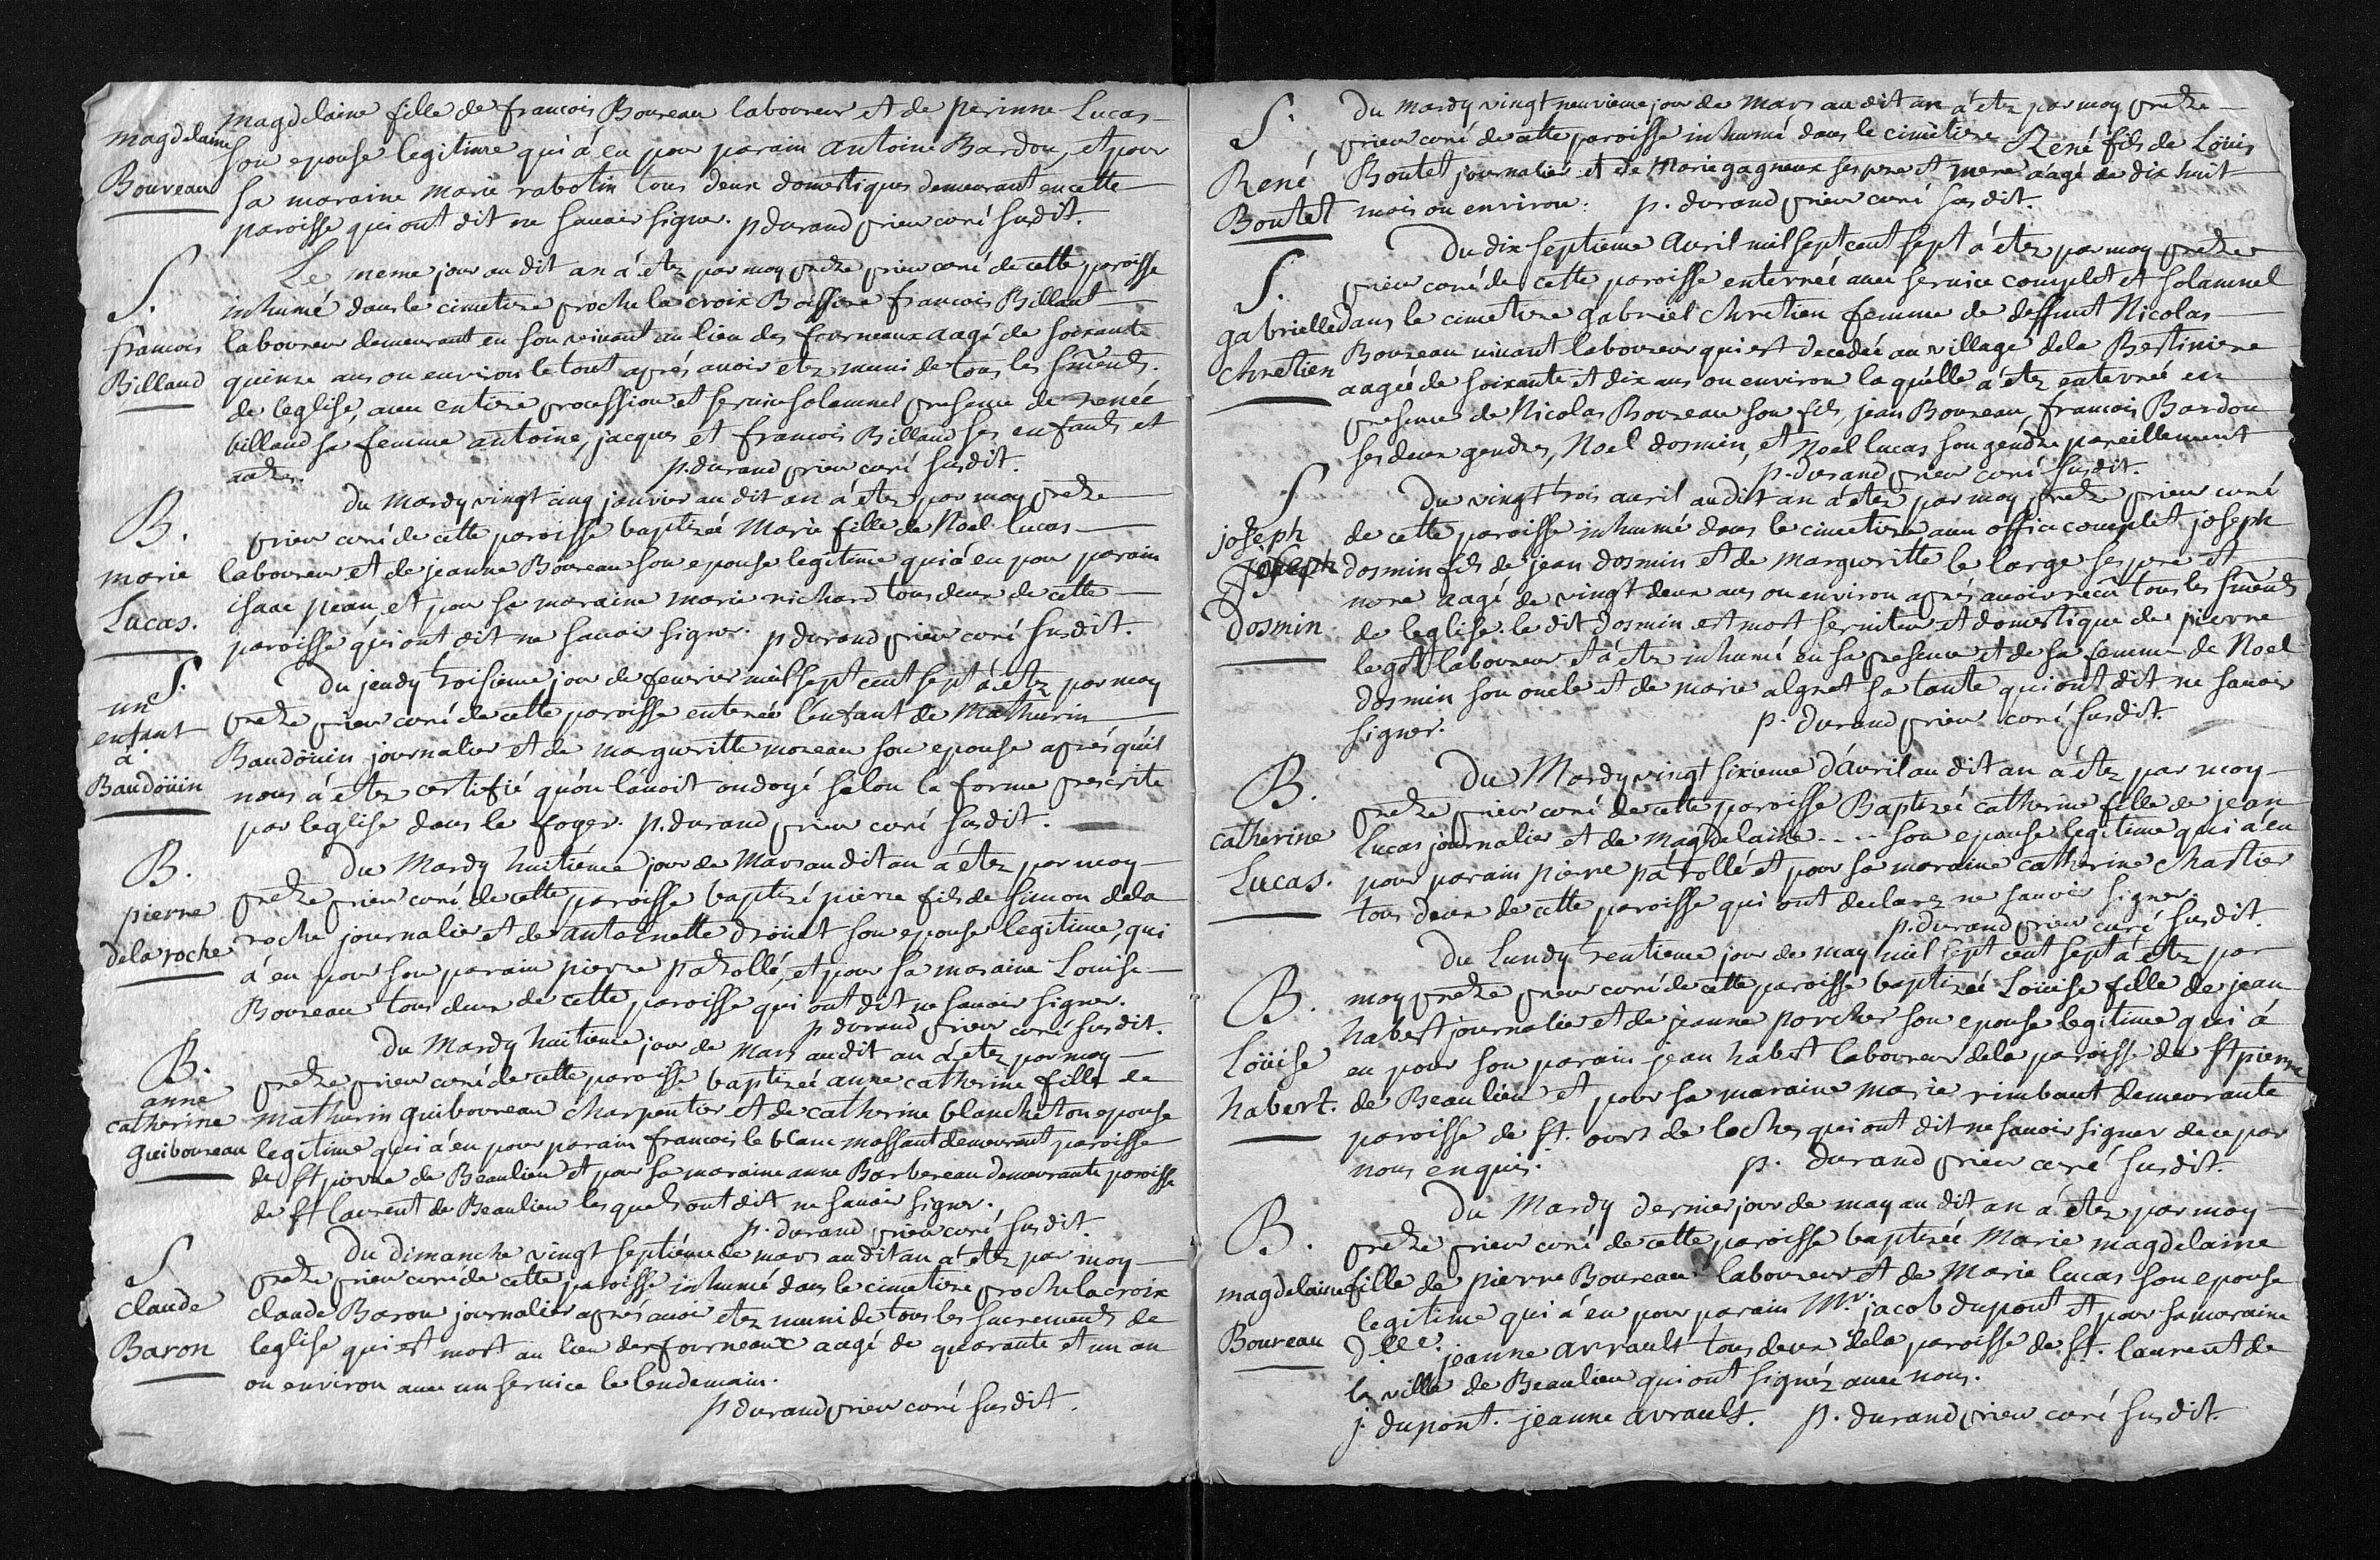 magdelaine fille de francois Boureau laboureur et de perinne Lucas
magdelaine
son epouse legitime qui á eu pour parain antoine Bardou, et pour
Boureau
sa maraine marie rabotin tous deux domestiques demeurant en cette
paroisse qui ont dit ne sauoir signer. p durand prieur curé susdit.
S.
Le meme jour au dit an á etez par moy pretre prieur curé de cette paroisse
inhumé dans le cimetiere proche la croix Boissiere francois Billaut
francois
laboureur demeurant en son viuant au lieu des fourneaux aagé de soixante
Billaud
quinze ans ou enuiron le tout aprés auoir etez muni de tous les sments.
de leglise, auec entiere procession et seruice solamnel presence de renée
billaud sa femme antoine, jacques et francois Billaud ses enfants et
autres. p. durand prieur curé susdit.
B.
du mardy vingt cinq januier au dit an á etez par moy pretre
prieur curé de cette paroisse baptizeé Marie fille de Noel lucas
marie
laboureur et de jeanne Boureau son epouse legitime qui á eu pour parain
isaac peau, et pour sa maraine marie richard tous deux de cette
Lucas.
paroisse qui ont dit ne sauoir signer. p durand prieur curé susdit.
S.
du jeudy troisieme jour de feurier mil sept cent sept á etez par moy
un
enfant
pretre prieur curé de cette paroisse enterreé l'enfant de Mathurin
à
Baudoüin journalier et de margueritte moreau son epouse aprés qu'il
Baudoüin
nous á etez certifié qu'on l'áuoit ondoyé selon la forme prescrite
par leglise dans le foyer. p. durand prieur curé susdit.
B.
du Mardy huitiéme jour de Mars au dit an á etez par moy
pretre prieur curé de cette paroisse baptizé pierre fils de simon dela
pierre
roche journalier et de antoinette droüet son epouse legitime, qui
dela roche
á eu pour son parain pierre patrollé, et pour sa maraine Louise
Boureau tous deux de cette paroisse qui ont dit ne sauoir signer.
p durand prieur curé susdit.
B.
du Mardy huitieme jour de Mars audit an á etez par moy
anne
pretre prieur curé de cette paroisse baptizeé anne catherine fille de
catherine
mathurin guiboureau charpentier et de catherine blancheton epouse
guiboureau
legitime qui á eu pour parain francois le blanc massant demeurant paroisse
de St pierre de Beaulieu et pour sa maraine anne Barbereau demeurante paroisse
de St laurent de Beaulieu lesquels ont dit ne sauoir signer.
p. durand prieur curé susdit.
S
du dimanche vingt septiéme de mars au dit an á etez par moy
pretre prieur curé de cette paroisse inhumé dans le cimetiere proche la croix
claude
claude Baron journalier aprés auoir etez muni de tous les sacrements de
Baron
leglise qui est mort au lieu des fourneaux aagé de quarante et un an
ou enuiron auec un seruice le lendemain.
p durand prieur curé susdit.
S.
du mardy vingt neuvieme jour de Mars au dit an á etez par moy pretre
prieur curé de cette paroisse inhumé dans le cimetiere René fils de Loüis
René
Boutet journalier et de Marie gagneux ses pere et mere aagé de dix huit
Boutet
mois ou enuiron. p. durand prieur curé susdit.
S.
du dix septieme auril mil sept cent sept á etez par moy pretre
prieur curé de cette paroisse enterreé auec seruice complet et solamnel
gabrielle
dans le cimetiere gabriel chretien femme de deffunt Nicolas
chretien
Boureau uiuant laboureur qui est decedeé au village dela Bestiniere
aageé de soixante et dix ans ou enuiron laquélle á etez enterreé en
presence de Nicolas Boureau son fils, jean Boureau, francois Bardou
ses deux gendres, Noel dosmin, et Noel lucas son gendre pareillement
p. durand prieur curé susdit.
S
du vingt trois auril audit an á etez par moy pretre prieur curé
joseph
de cette paroisse inhumé dans le cimetiere auec office complet joseph
joseph
dosmin fils de jean dosmin et de margueritte le large ses pere et
mere aagé de vingt deux ans ou enuiron aprés auoir recu tous les sments
Dosmin
de leglise. le dit dosmin est mort seruiteur et domestique de pierre
legot laboureur et á etez inhumé en sa presence et de sa femme de Noel
dosmin son oncle et de marie algret sa tante qui ont dit ne sauoir
signer. p. durand prieur curé susdit.
B.
du Mardy vingt sixieme d'áuril au dit an á etez par moy
pretre prieur curé de cette paroisse Baptizeé catherine fille de jean
catherine
Lucas journalier et de magdelaine - - - son epouse legitime qui á eu
Lucas.
pour parain pierre pátrollé et pour sa maraine catherine chartier
tous deux de cette paroisse qui ont declarez ne sauoir signer.
p. durand prieur curé susdit.
du Lundy trentieme jour de may mil sept cent sept á etez par
B.
moy pretre prieur curé de cette paroisse baptizeé Loüise fille de jean
habert journalier et de jeanne porcher son epouse legitime qui á
Loüise
eu pour son parain jean habert laboureur dela paroisse de St pierre
habert.
de Beaulieu et pour sa maraine marie rimbaut demeurante
paroisse de St. ours de loches qui ont dit ne sauoir signer de ce par
nous enquis. p. durand prieur curé susdit.
du Mardy dernier jour de may au dit an á etez par moy
B.
pretre prieur curé de cette paroisse baptizeé Marie magdelaine
magdelaine
fille de pierre Boureau laboureur et de Marie lucas son epouse
legitime qui á eu pour parain Mr. jacob dupont et pour sa maraine
Boureau
Dlle. jeanne avrault tous deux dela paroisse de St. laurent de
la ville de Beaulieu qui ont signéz auec nous.
j. dupont. jeanne avrault. p. durand prieur curé susdit.